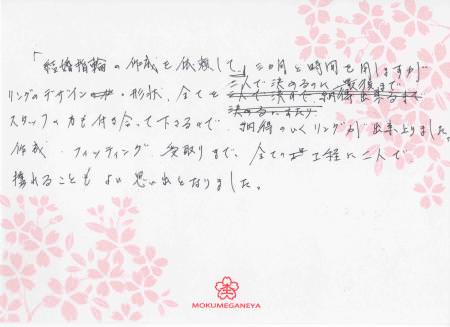 「結婚指輪の作成を依頼して、三ヶ月と時間を用しますが
リングのデザイン・形状、全てを二人で決めるのに最後まで
スタッフの方も付き合って下さるので、納得のいくリングが出来上りました。
作成、フィッティング、受取りまで、全ての工程に二人で
携れることもよい思い出となりました。
MOKUMEGANEYA